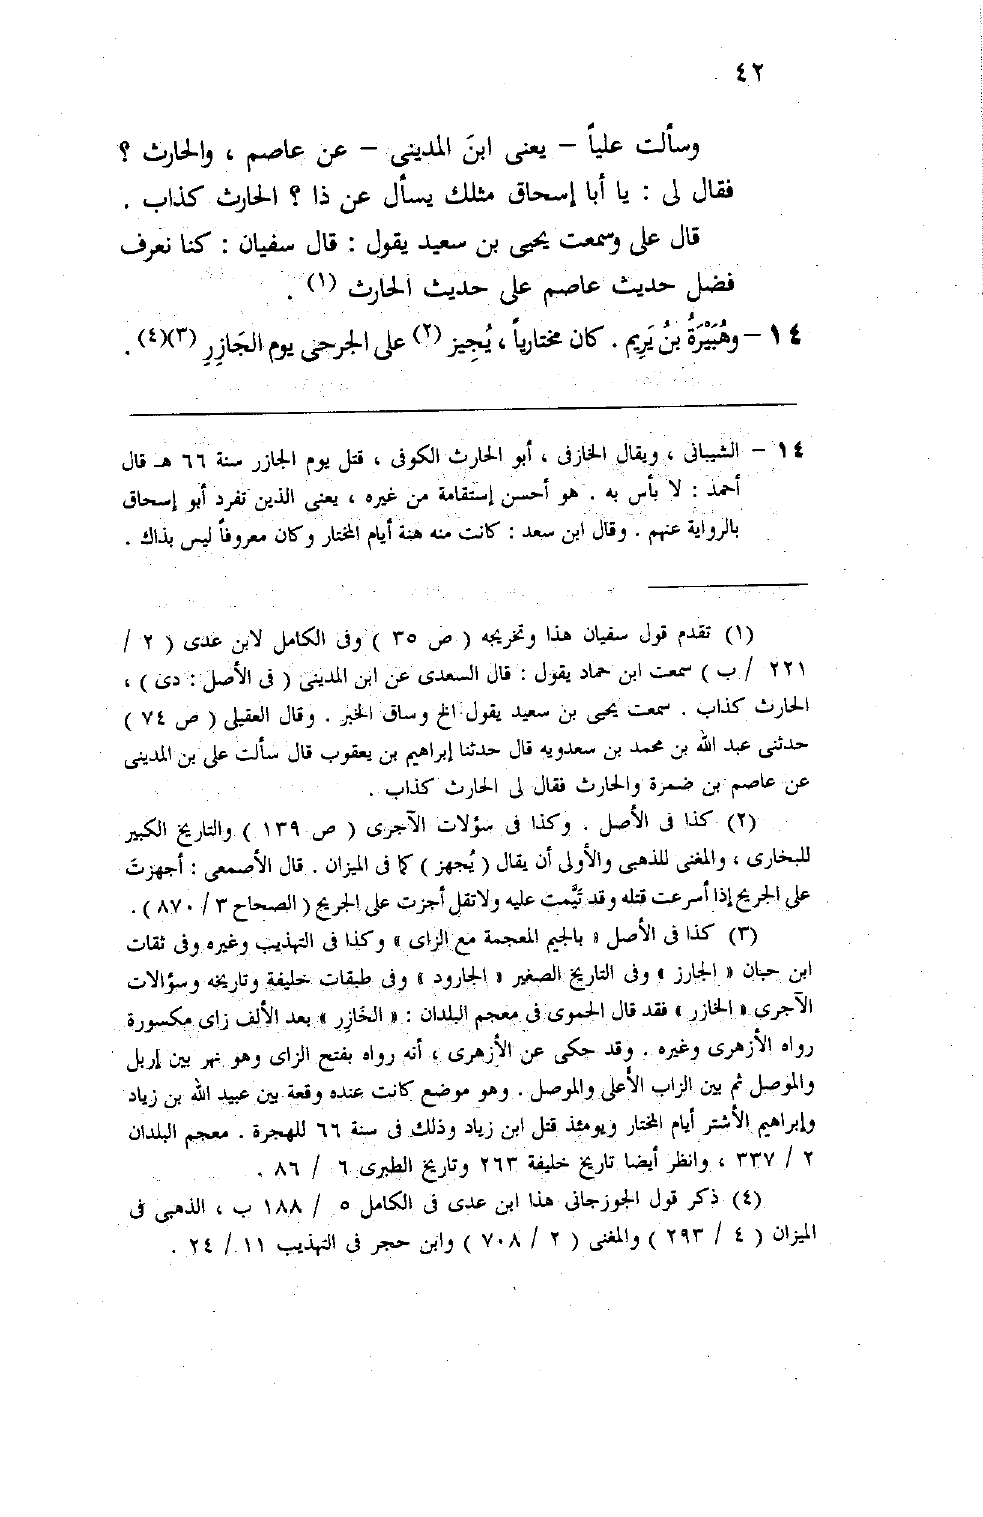 ٤٢
وسألت علياً – يعنى ابنَ المدينى – عن عاصم ، والحارث ؟
فقال لى : يا أبا إسحاق مثلك يسأل عن ذا ؟ الحارث كذاب .
قال على وسمعت يحيى بن سعيد يقول : قال سفيان : كنا نعرف
فضل حديث عاصم على حديث الحارث (١) .
١٤ – وهُبَيْرَةُ بنُ يَرِيم . كان مختارياً ، يُجِيز (٢) على الجرحى يوم الجَازِرِ (٣)(٤) .
١٤ – الشيبانى ، ويقال الخازفى ، أبو الحارث الكوفى ، قتل يوم الجازر سنة ٦٦ هـ قال
أحمد : لا بأس به . هو أحسن إستقامة من غيره ، يعنى الذين تفرد أبو إسحاق
بالرواية عنهم . وقال ابن سعد : كانت منه هنة أيام المختار وكان معروفاً ليس بذاك .
(١) تقدم قول سفيان هذا وتخريجه ( ص ٣٥ ) وفى الكامل لابن عدى ( ٢ /
٢٢١ / ب ) سمعت ابن حماد يقول : قال السعدى عن ابن المدينى ( فى الأصل : دى ) ،
الحارث كذاب . سمعت يحيى بن سعيد يقول الخ وساق الخبر . وقال العقيلى ( ص ٧٤ )
حدثنى عبد الله بن محمد بن سعدويه قال حدثنا إبراهيم بن يعقوب قال سألت على بن المدينى
عن عاصم بن ضمرة والحارث فقال لى الحارث كذاب .
(٢) كذا فى الأصل . وكذا فى سؤلات الآجرى ( ص ١٣٩ ) والتاريخ الكبير
للبخارى ، والمغنى للذهبى والأولى أن يقال ( يُجهز ) كما فى الميزان . قال الأصمعى : أجهزتَ
على الجريح إذا أسرعت قتله وقد تَمَّمت عليه ولاتقل أجزت على الجريح ( الصحاح ٣ / ٨٧٠ ) .
(٣) كذا فى الأصل « بالجيم المعجمة مع الزاى » وكذا فى التهذيب وغيره وفى ثقات
ابن حبان « الجارز » وفى التاريخ الصغير « الجارود » وفى طبقات خليفة وتاريخه وسؤالات
الآجرى « الخازر » فقد قال الحموى فى معجم البلدان : « الخَازِر » بعد الألف زاى مكسورة
رواه الأزهرى وغيره . وقد حكى عن الأزهرى ، أنه رواه بفتح الزاى وهو نهر بين إربل
والموصل ثم بين الزاب الأعلى والموصل . وهو موضع كانت عنده وقعة بين عبيد الله بن زياد
وإبراهيم الأشتر أيام المختار ويومئذ قتل ابن زياد وذلك فى سنة ٦٦ للهجرة . معجم البلدان
٢ / ٣٣٧ ، وانظر أيضا تاريخ خليفة ٢٦٣ وتاريخ الطبرى ٦ / ٨٦ .
(٤) ذكر قول الجوزجانى هذا ابن عدى فى الكامل ٥ / ١٨٨ ب ، الذهبى فى
الميزان ( ٤ / ٢٩٣ ) والمغنى ( ٢ / ٧٠٨ ) وابن حجر فى التهذيب ١١ / ٢٤ .